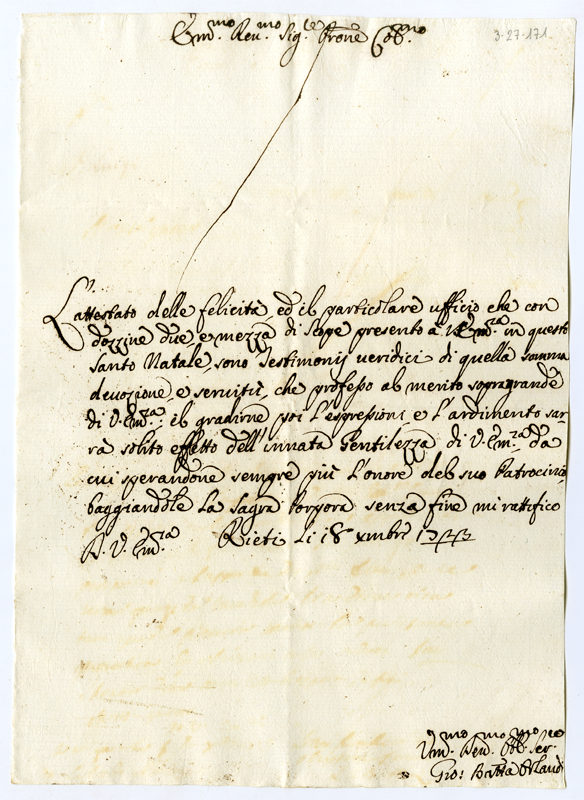 Em.mo Rev.mo Sig.re Prone Col.mo
3-27-171.
L'attestato delle felicità, ed il particolare ufficio che con
dozzine due, e mezza di Sepe presento a V. Em.za in questo
Santo Natale, sono Testimonij veridici di quella somma
devozione, e servitù, che professo al merito sopragrande
di V. Em.za; il gradirne poi l'espressioni e l'ardimento sa-
rà solito effetto dell'innata Gentilezza di V. Em.za da
cui sperandone sempre più l'onore del suo Patrocinio
baggiandole la Sagra Porpora senza fine mi rattifico
D. V. Em.za Rieti li 18 Xmbre
Um.mo Dev.mo Obl.mo Ser.re
Gio: Batta Orlandi